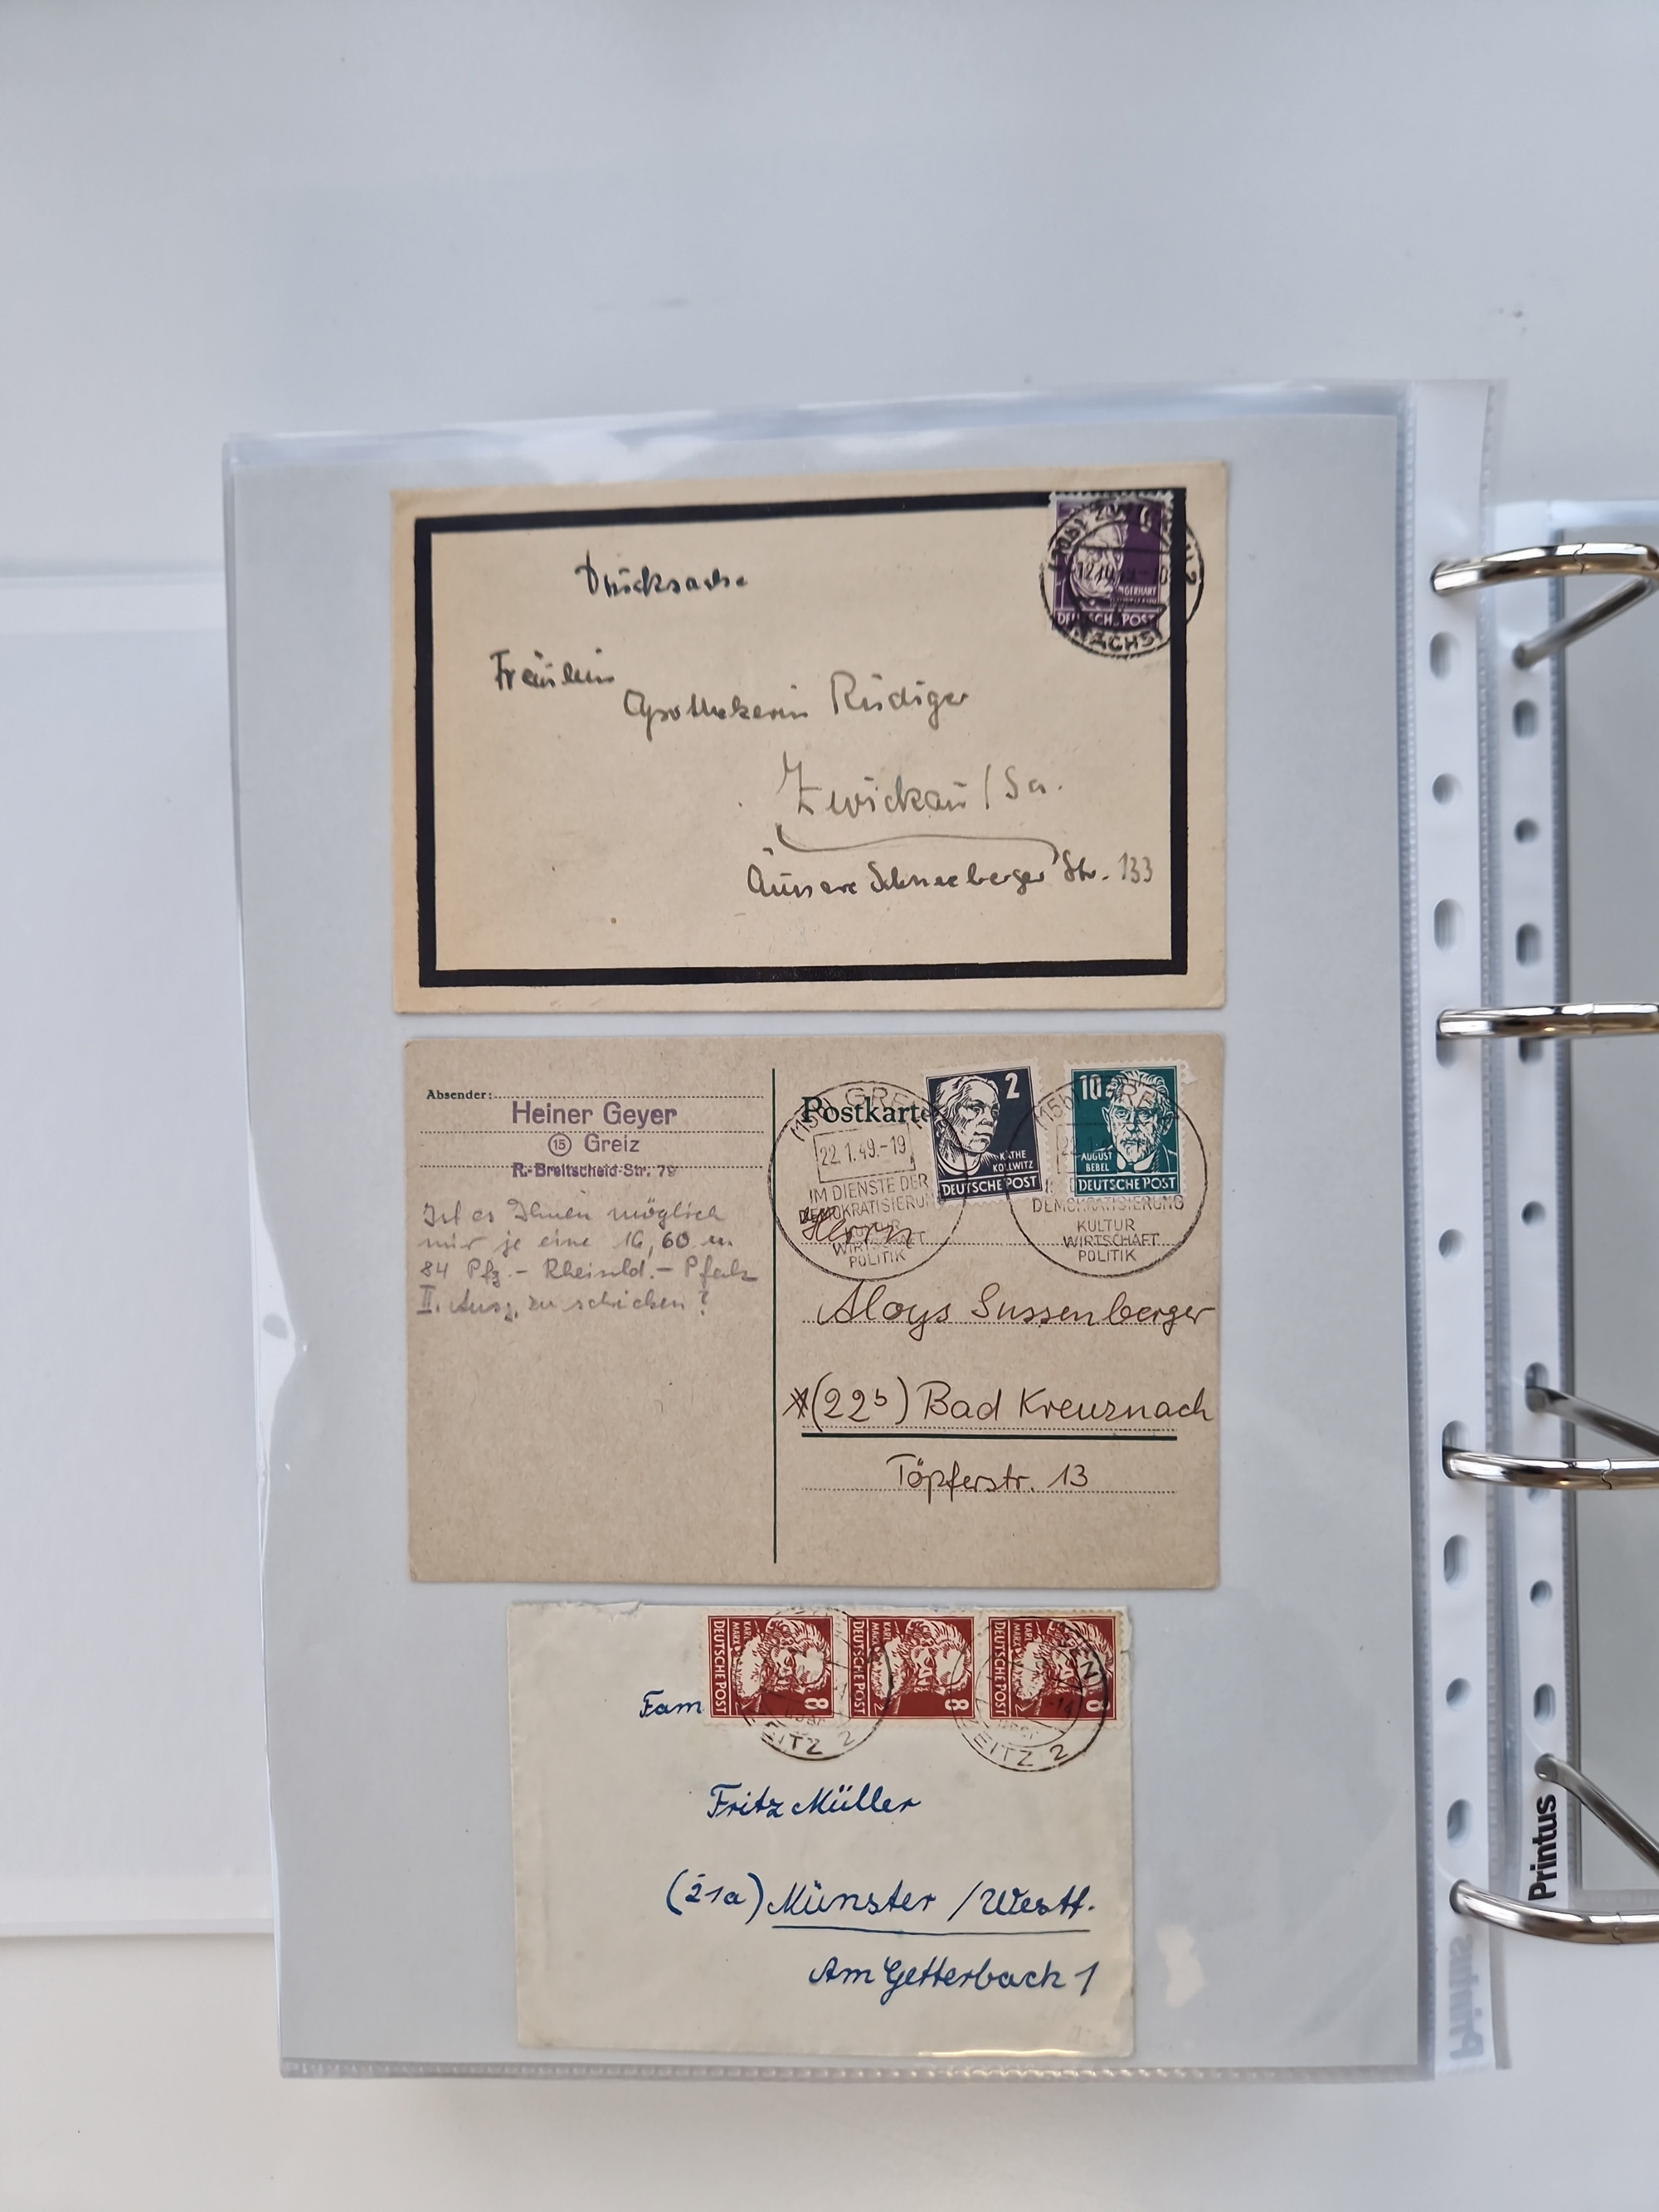 Drucksache
6
GERHART
DEUTSCHE POST
SACHS
Fräulein
Apothekerin Rüdiger
Zwickau / Sa.
Äussere Schneeberger Str. 133
Absender:
Heiner Geyer
15 Greiz
R.-Breitscheid-Str. 79
Ist es Ihnen möglich
mir je eine 16, 60 u.
84 Pfg. - Rheinld. - Pfalz
II. Ausg. zu schicken?
Postkarte
2
KÄTHE
KOLLWITZ
DEUTSCHE POST
10
AUGUST
BEBEL
DEUTSCHE POST
(15b) GREIZ
22.1.49.-19
IM DIENSTE DER
DEMOKRATISIERUNG
KULTUR
WIRTSCHAFT
POLITIK
(15b) GREIZ
DEMOKRATISIERUNG
KULTUR
WIRTSCHAFT
POLITIK
Herrn
Aloys Sussenberger
(22b) Bad Kreuznach
Töpferstr. 13
DEUTSCHE POST
KARL
MARX
8
DEUTSCHE POST
KARL
MARX
8
DEUTSCHE POST
KARL
MARX
8
ZEITZ 2
ZEITZ 2
Fam
Fritz Müller
(21a) Münster / Westf.
Am Getterbach 1
Printus